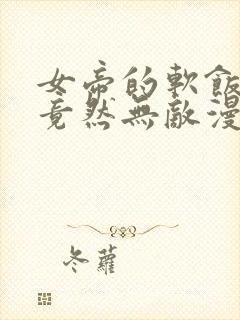 女帝的軟飯
竟然無敵漫
冬蘿